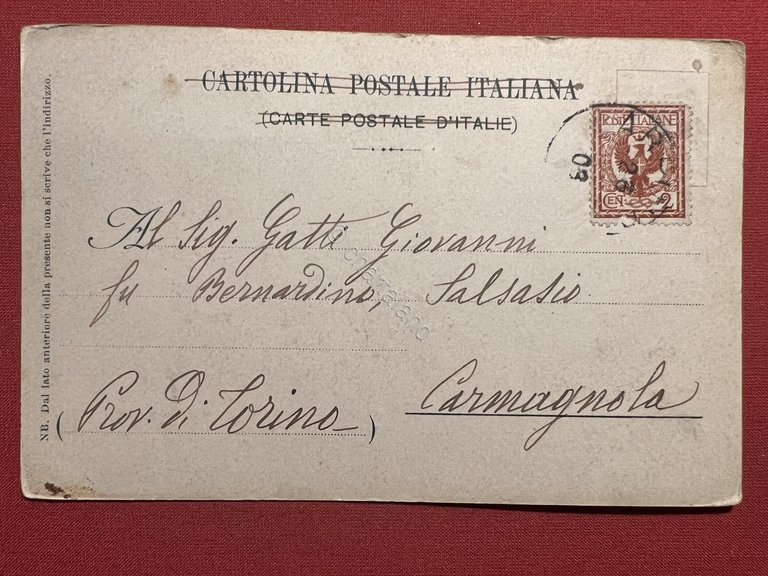 CARTOLINA POSTALE ITALIANA
(CARTE POSTALE D'ITALIE)
POSTE ITALIANE
CEN. 2
26
03
Al Sig. Gatti Giovanni
fu Bernardino, Salsasio
Carmagnola
(Prov. di Torino)
NB. Dal lato anteriore della presente non si scrive che l'indirizzo.